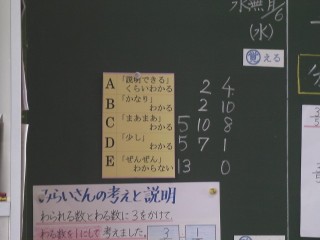 水無月/6
(水)
考える
A 「説明できる」
くらいわかる 2 4
B 「かなり」
わかる 2 10
C 「まあまあ」
わかる 5 10 8
D 「少し」
わかる 5 7 1
E 「ぜんぜん」
わからない 13 0
みらいさんの考えと説明
わられる数とわる数に3をかけて、
わる数を1にして考えました。
3 1